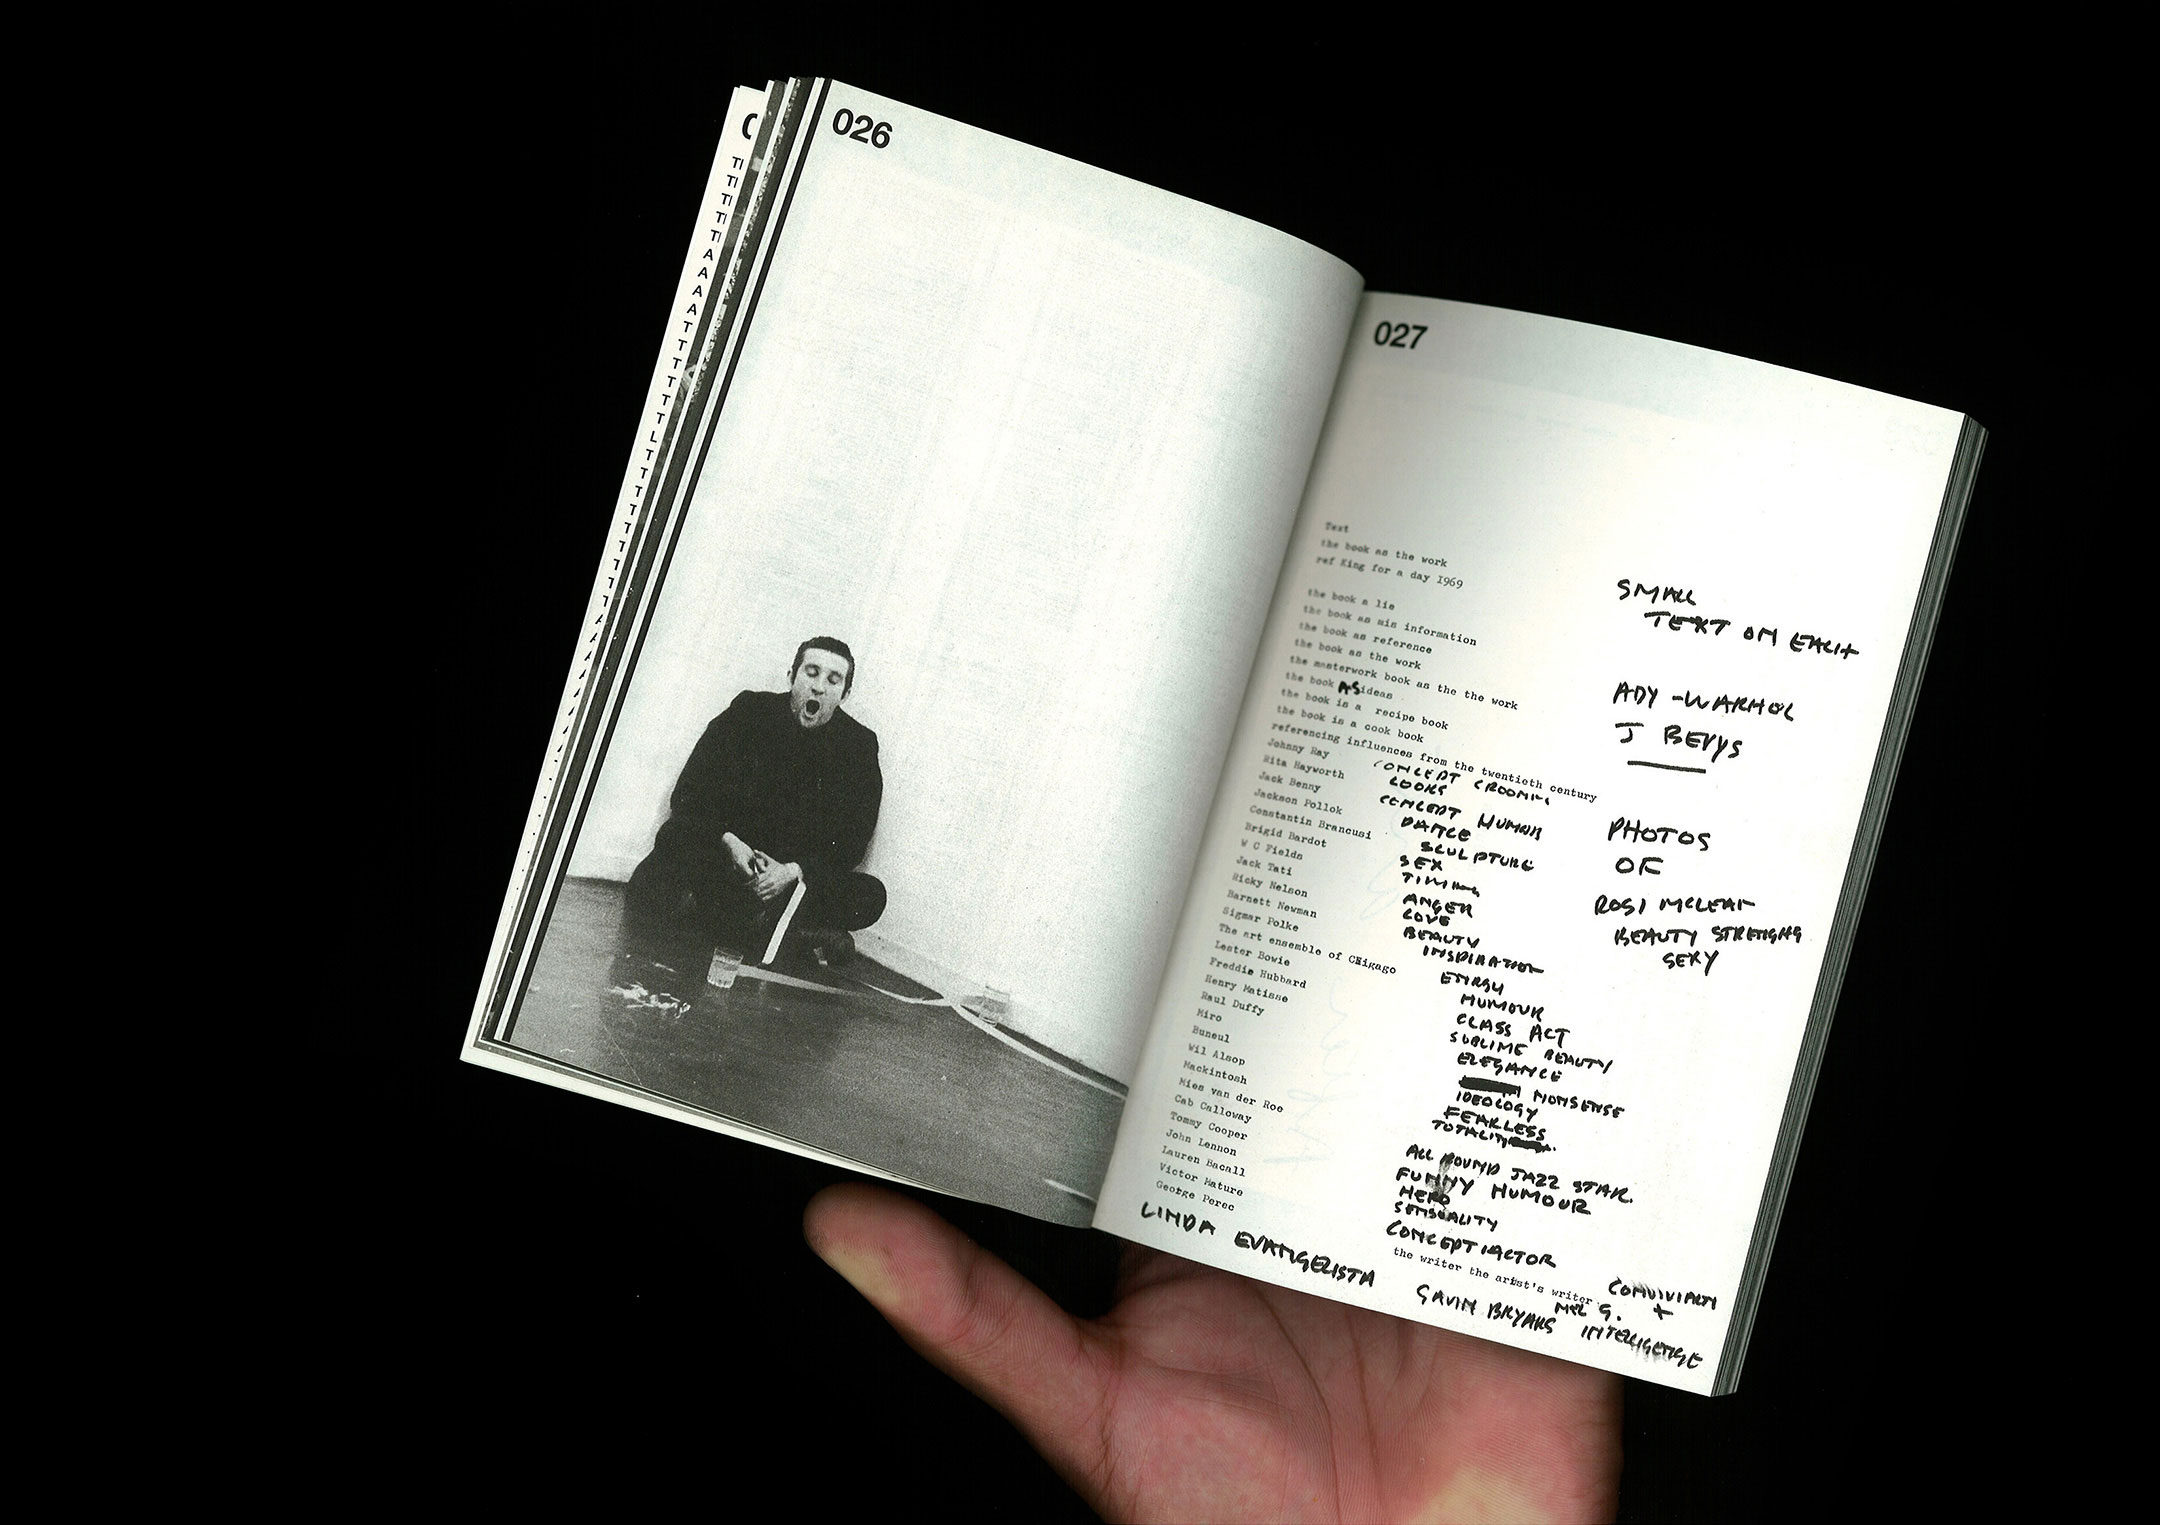 026
027
Text
the book as the work
ref King for a day 1969
the book a lie
the book as mis information
the book as reference
the book as the work
the masterwork book as the the work
the book AS ideas
the book is a recipe book
the book is a cook book
referencing influences from the twentieth century
Johnny Ray
Rita Hayworth
Jack Benny
Jackson Pollok
Constantin Brancusi
Brigid Bardot
W C Fields
Jack Tati
Ricky Nelson
Barnett Newman
Sigmar Polke
The art ensemble of CHigago
Lester Bowie
Freddie Hubbard
Henry Matisse
Raul Duffy
Miro
Buneul
Wil Alsop
Mackintosh
Mies van der Roe
Cab Calloway
Tommy Cooper
John Lennon
Lauren Bacall
Victor Mature
George Perec
CONCEPT
LOOKS
CONCEPT HUMOUR
DANCE
SCULPTURE
SEX
TIMING
ANGER
LOVE
BEAUTY
INSPIRATION
ENERGY
HUMOUR
CLASS ACT
SUBLIME BEAUTY
ELEGANCE
NONSENSE
IDEOLOGY
FEARLESS
TOTALITY
ALL ROUND JAZZ STAR.
FUNNY HUMOUR
HERO
SENSUALITY
CONCEPT/ACTOR
the writer the artist's writer
LINDA EVANGELISTA
GAVIN BRYARS
MEL G.
+
INTELLIGENCE
SMALL
TEXT ON EACH
ADY-WARHOL
J BEUYS
PHOTOS
OF
ROSI MCLEAN
BEAUTY STRENGHG
SEXY